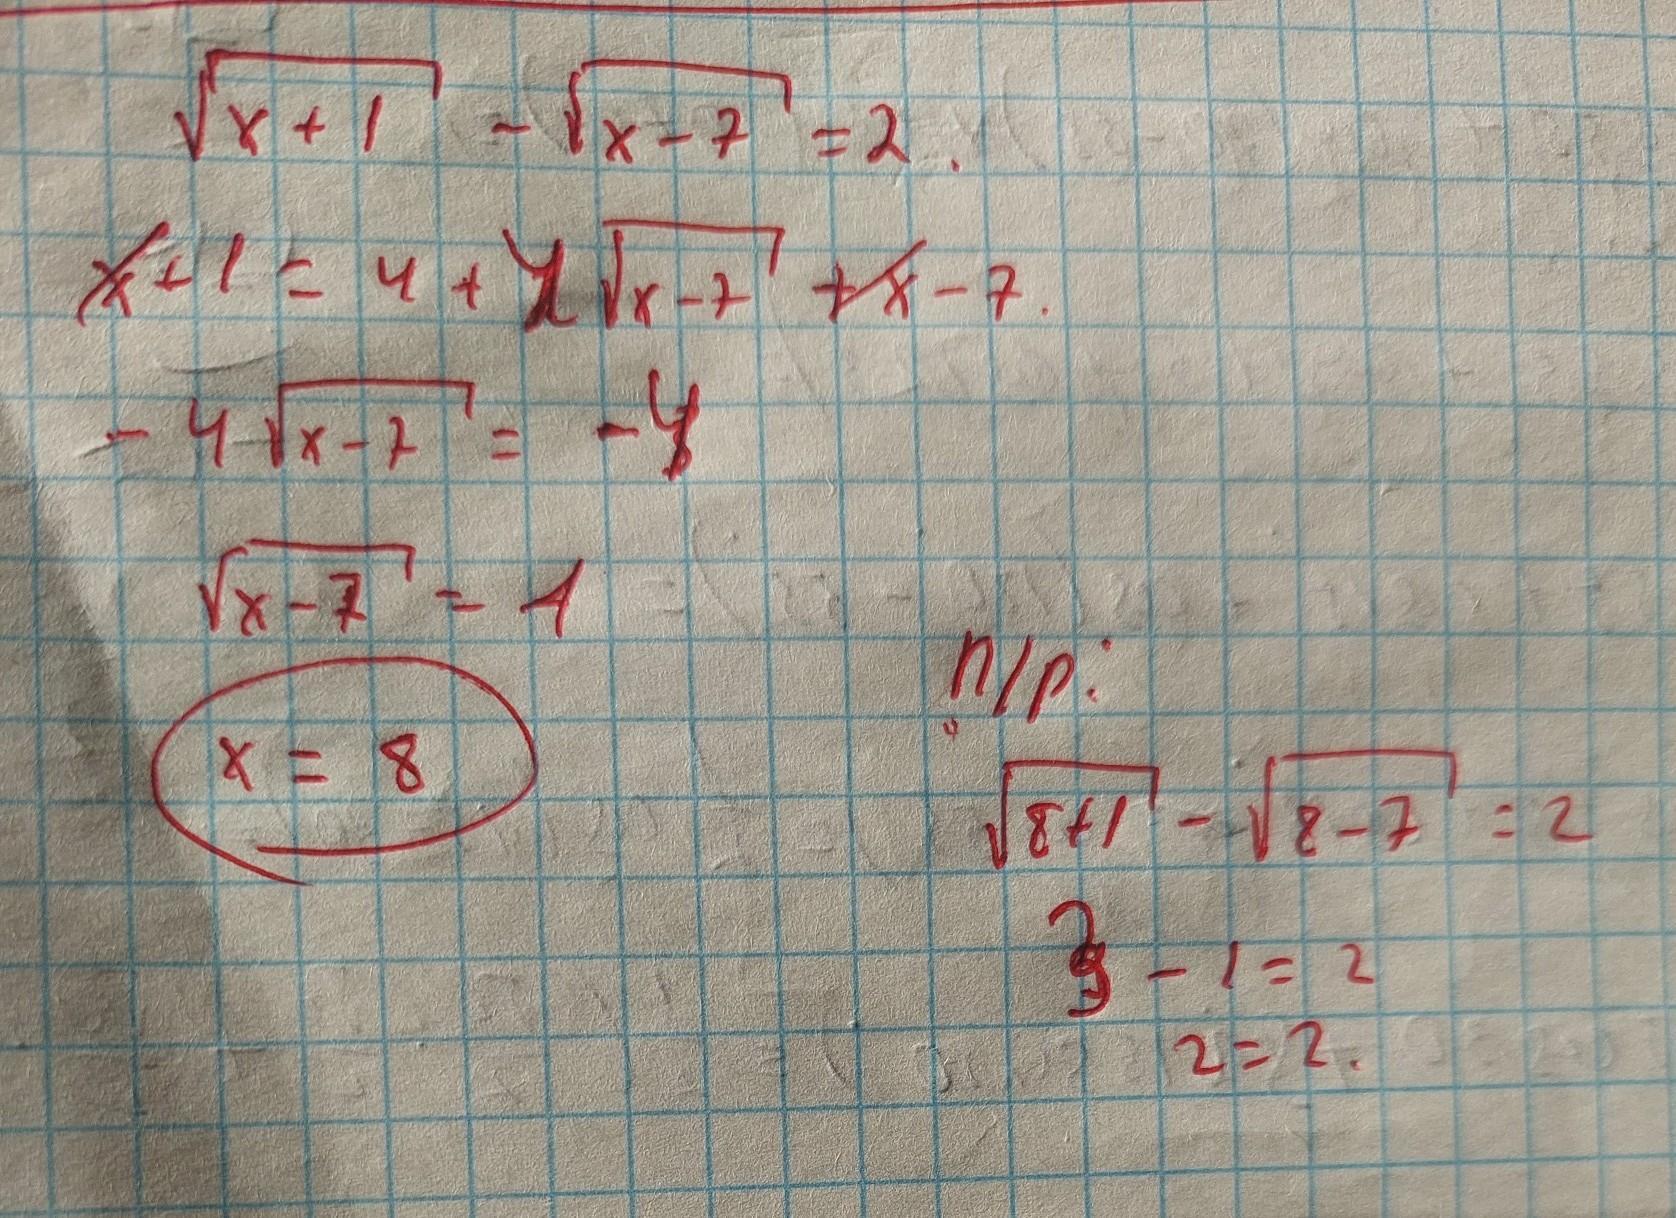 √(x+1) - √(x-7) = 2.
x+1 = 4 + 4√(x-7) + x - 7.
- 4√(x-7) = - 4
√(x-7) = 1
x = 8
п/р:
√(8+1) - √(8-7) = 2
3 - 1 = 2
2 = 2.